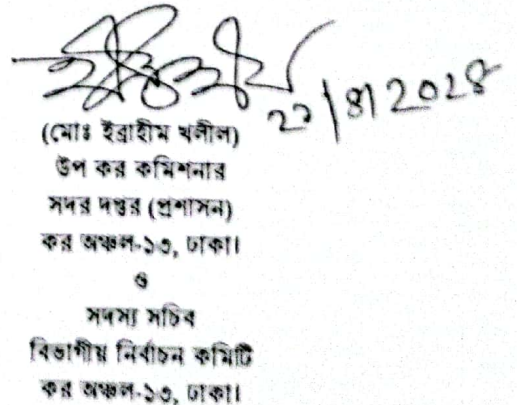 ২১/৪/২০২৪
(মোঃ ইব্রাহীম খলীল)
উপ কর কমিশনার
সদর দপ্তর (প্রশাসন)
কর অঞ্চল-১৩, ঢাকা।
ও
সদস্য সচিব
বিভাগীয় নির্বাচন কমিটি
কর অঞ্চল-১৩, ঢাকা।